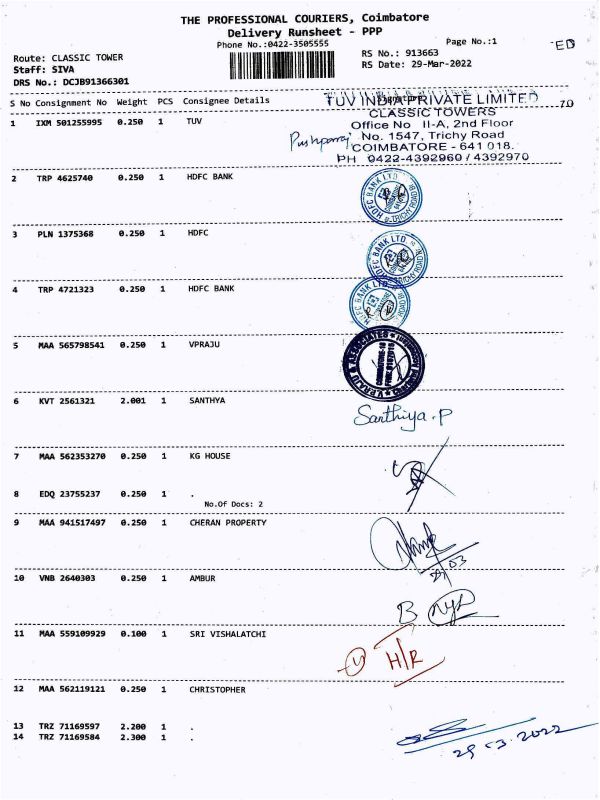 THE PROFESSIONAL COURIERS, Coimbatore
Delivery Runsheet - PPP
Phone No.:0422-3505555
Page No.:1
ED
Route: CLASSIC TOWER
RS No.: 913663
Staff: SIVA
RS Date: 29-Mar-2022
DRS No.: DCJB91366301
S No Consignment No Weight PCS Consignee Details
TUV INDIA PRIVATE LIMITED
70
1 IXM 501255995 0.250 1 TUV
CLASSIC TOWERS
Office No II-A, 2nd Floor
Pushparaj No. 1547, Trichy Road
COIMBATORE - 641 018.
PH 0422-4392960 / 4392970
2 TRP 4625740 0.250 1 HDFC BANK
HDFC BANK LTD.
3 PLN 1375368 0.250 1 HDFC
HDFC BANK LTD.
4 TRP 4721323 0.250 1 HDFC BANK
HDFC BANK LTD.
5 MAA 565798541 0.250 1 VPRAJU
V PRAJU & ASSOCIATES
6 KVT 2561321 2.001 1 SANTHYA
Santhiya.P
7 MAA 562353270 0.250 1 KG HOUSE
8 EDQ 23755237 0.250 1 .
No.Of Docs: 2
9 MAA 941517497 0.250 1 CHERAN PROPERTY
10 VNB 2640303 0.250 1 AMBUR
B
11 MAA 559109929 0.100 1 SRI VISHALATCHI
H/R
12 MAA 562119121 0.250 1 CHRISTOPHER
13 TRZ 71169597 2.200 1 .
14 TRZ 71169584 2.300 1 .
29.3.2022